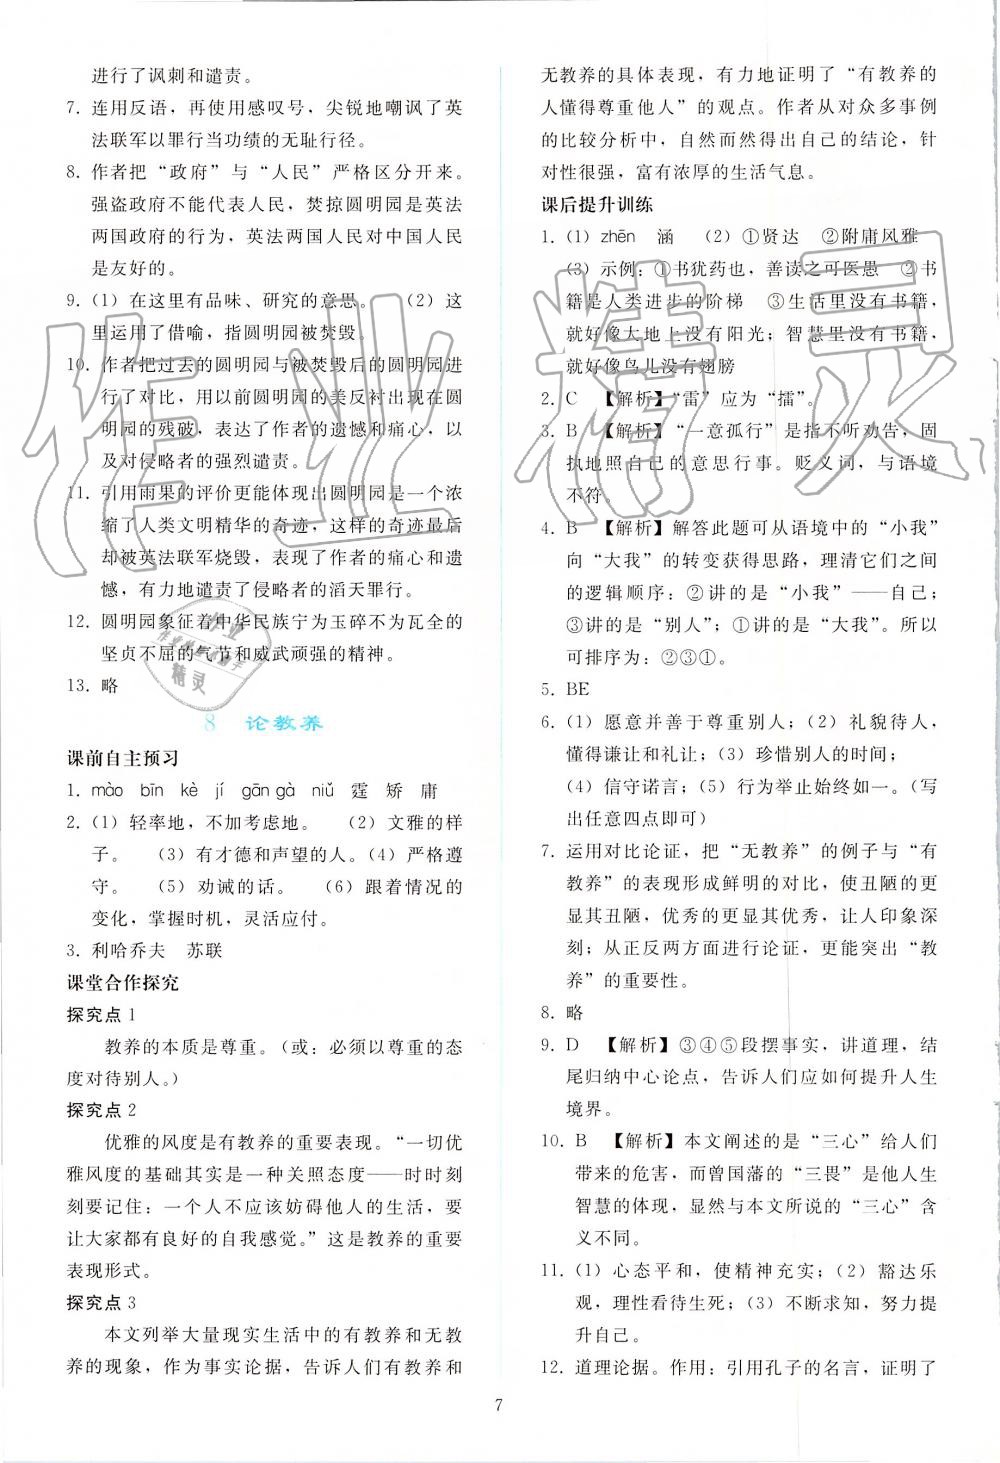 进行了讽刺和谴责。
7. 连用反语，再使用感叹号，尖锐地嘲讽了英
法联军以罪行当功绩的无耻行径。
8. 作者把“政府”与“人民”严格区分开来。
强盗政府不能代表人民，焚掠圆明园是英法
两国政府的行为，英法两国人民对中国人民
是友好的。
9. (1) 在这里有品味、研究的意思。 (2) 这
里运用了借喻，指圆明园被焚毁。
10. 作者把过去的圆明园与被焚毁后的圆明园进
行了对比，用以前圆明园的美反衬出现在圆
明园的残破，表达了作者的遗憾和痛心，以
及对侵略者的强烈谴责。
11. 引用雨果的评价更能体现出圆明园是一个浓
缩了人类文明精华的奇迹，这样的奇迹最后
却被英法联军烧毁，表现了作者的痛心和遗
憾，有力地谴责了侵略者的滔天罪行。
12. 圆明园象征着中华民族宁为玉碎不为瓦全的
坚贞不屈的气节和威武顽强的精神。
13. 略
8 论教养
课前自主预习
1. mào bīn kè jí gān gà niǔ 霆 矫 庸
2. (1) 轻率地，不加考虑地。 (2) 文雅的样
子。 (3) 有才德和声望的人。(4) 严格遵
守。 (5) 劝诫的话。 (6) 跟着情况的
变化，掌握时机，灵活应付。
3. 利哈乔夫 苏联
课堂合作探究
探究点 1
教养的本质是尊重。（或：必须以尊重的态
度对待别人。）
探究点 2
优雅的风度是有教养的重要表现。“一切优
雅风度的基础其实是一种关照态度——时时刻
刻要记住：一个人不应该妨碍他人的生活，要
让大家都有良好的自我感觉。”这是教养的重要
表现形式。
探究点 3
本文列举大量现实生活中的有教养和无教
养的现象，作为事实论据，告诉人们有教养和
无教养的具体表现，有力地证明了“有教养的
人懂得尊重他人”的观点。作者从对众多事例
的比较分析中，自然而然得出自己的结论，针
对性很强，富有浓厚的生活气息。
课后提升训练
1. (1) zhēn 涵 (2) ①贤达 ②附庸风雅
(3) 示例：①书犹药也，善读之可医愚 ②书
籍是人类进步的阶梯 ③生活里没有书籍，
就好像大地上没有阳光；智慧里没有书籍，
就好像鸟儿没有翅膀
2. C 【解析】“雷”应为“擂”。
3. B 【解析】“一意孤行”是指不听劝告，固
执地照自己的意思行事。贬义词，与语境
不符。
4. B 【解析】解答此题可从语境中的“小我”
向“大我”的转变获得思路，理清它们之间
的逻辑顺序：②讲的是“小我”——自己；
③讲的是“别人”；①讲的是“大我”。所以
可排序为：②③①。
5. BE
6. (1) 愿意并善于尊重别人；(2) 礼貌待人，
懂得谦让和礼让；(3) 珍惜别人的时间；
(4) 信守诺言；(5) 行为举止始终如一。（写
出任意四点即可）
7. 运用对比论证，把“无教养”的例子与“有
教养”的表现形成鲜明的对比，使丑陋的更
显其丑陋，优秀的更显其优秀，让人印象深
刻；从正反两方面进行论证，更能突出“教
养”的重要性。
8. 略
9. D 【解析】③④⑤段摆事实，讲道理，结
尾归纳中心论点，告诉人们应如何提升人生
境界。
10. B 【解析】本文阐述的是“三心”给人们
带来的危害，而曾国藩的“三畏”是他人生
智慧的体现，显然与本文所说的“三心”含
义不同。
11. (1) 心态平和，使精神充实；(2) 豁达乐
观，理性看待生死；(3) 不断求知，努力提
升自己。
12. 道理论据。作用：引用孔子的名言，证明了
7
作业精灵